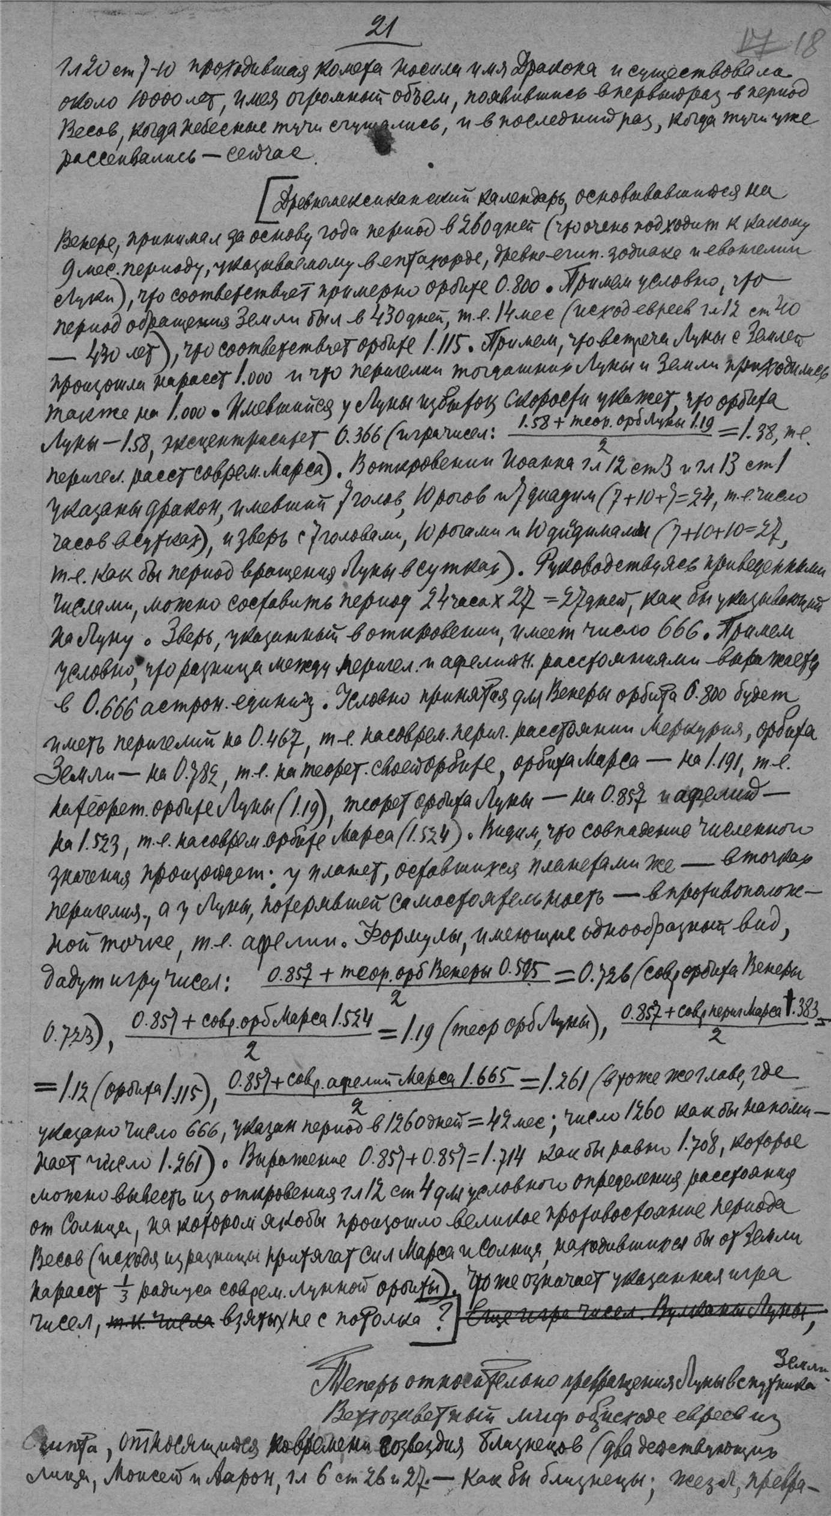 21
17 18
гл 20 ст 7-10 проходившая комета носила имя Дракона и существовала
около 10000 лет, имея огромный объем, появившись в первый раз в период
Весов, когда небесные тучи сгущались, и в последний раз, когда тучи уже
рассеивались — сейчас.
[Древнемексиканский календарь, основывавшийся на
Венере, принимал за основу года период в 260 дней (что очень подходит к какому
9 мес. периоду, указываемому в , древне-егип. зодиаке и евангелии
Луки), что соответствует примерно орбите 0.800. Примем условно, что
период обращения Земли был в 430 дней, т.е. 14 мес (исход евреев гл 12 ст 40
— 430 лет), что соответствует орбите 1.115. Примем, что встреча Луны с Землей
произошла на расст 1.000 и что перигелии тогдашних Луны и Земли приходились
также на 1.000. Имевшийся у Луны избыток скорости укажет, что орбита
Луны — 1.58, эксцентриситет 0.366 (игра чисел: 1.58 + теор. орб Луны 1.19 / 2 = 1.38, т.е.
перигел. расст соврем. Марса). В откровении Иоанна гл 12 ст 3 и гл 13 ст 1
указаны дракон, имевший 7 голов, 10 рогов и 7 диадим (7+10+7=24, т.е. число
часов в сутках), и зверь с 7 головами, 10 рогами и 10 диадимами (7+10+10=27,
т.е. как бы период вращения Луны в сутках). Руководствуясь приведенными
числами, можно составить период 24 часа х 27 = 27 дней, как бы указывающий
на Луну. Зверь, указанный в откровении, имеет число 666. Примем
условно, что разница между перигел. и афелийн. расстояниями выражается
в 0.666 астрон. единиц. Условно принятая для Венеры орбита 0.800 будет
иметь перигелий на 0.467, т.е. на соврем. periг. расстоянии Меркурия, орбита
Земли — на 0.782, т.е. на теорет. своей орбите, орбита Марса — на 1.191, т.е.
на теорет. орбите Луны (1.19), теорет орбита Луны — на 0.857 и афелий —
на 1.523, т.е. на соврем орбите Марса (1.524). Видим, что совпадение численного
значения произойдет: у планет, оставшихся планетами же — в точках
перигелия, а у Луны, потерявшей самостоятельность — в противополож-
ной точке, т.е. афелии. Формулы, имеющие однообразный вид,
дадут игру чисел: 0.857 + теор. орб Венеры 0.595 / 2 = 0.726 (совр орбита Венеры
0.723), 0.857 + совр. орб Марса 1.524 / 2 = 1.19 (теор орб Луны), 0.857 + совр периг Марса 1.383 / 2 =
= 1.12 (орбита 1.115), 0.857 + совр. афелий Марса 1.665 / 2 = 1.261 (в тоже же главе, где
указано число 666, указан период в 1260 дней = 42 мес; число 1260 как бы напоми-
нает число 1.261). Выражение 0.857 + 0.857 = 1.714 как бы равно 1.708, которое
можно вывести из откровения гл 12 ст 4 для условного определения расстояния
от Солнца, на котором якобы произошло великое противостояние периода
Весов (исходя из разницы притягат сил Марса и Солнца, находившихся бы от Земли
на расст 1/3 радиуса соврем. лунной орбиты). Что же означает указанная игра
чисел, т.к. числа взятых не с потолка?] Еще игра чисел. Вулканы Луны,
Теперь относительно превращения Луны в спутника Земли.
Ветхозаветный миф об исходе евреев из
Египта, относящийся ко времени созвездия Близнецов (два действующих
лица, Моисей и Аарон, гл 6 ст 26 и 27 — как бы близнецы; жезл, превра-